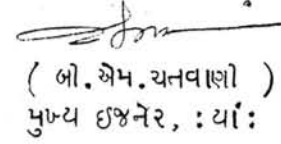 ( બી.એમ.ચતવાણી )
મુખ્ય ઇજનેર, :યાં: